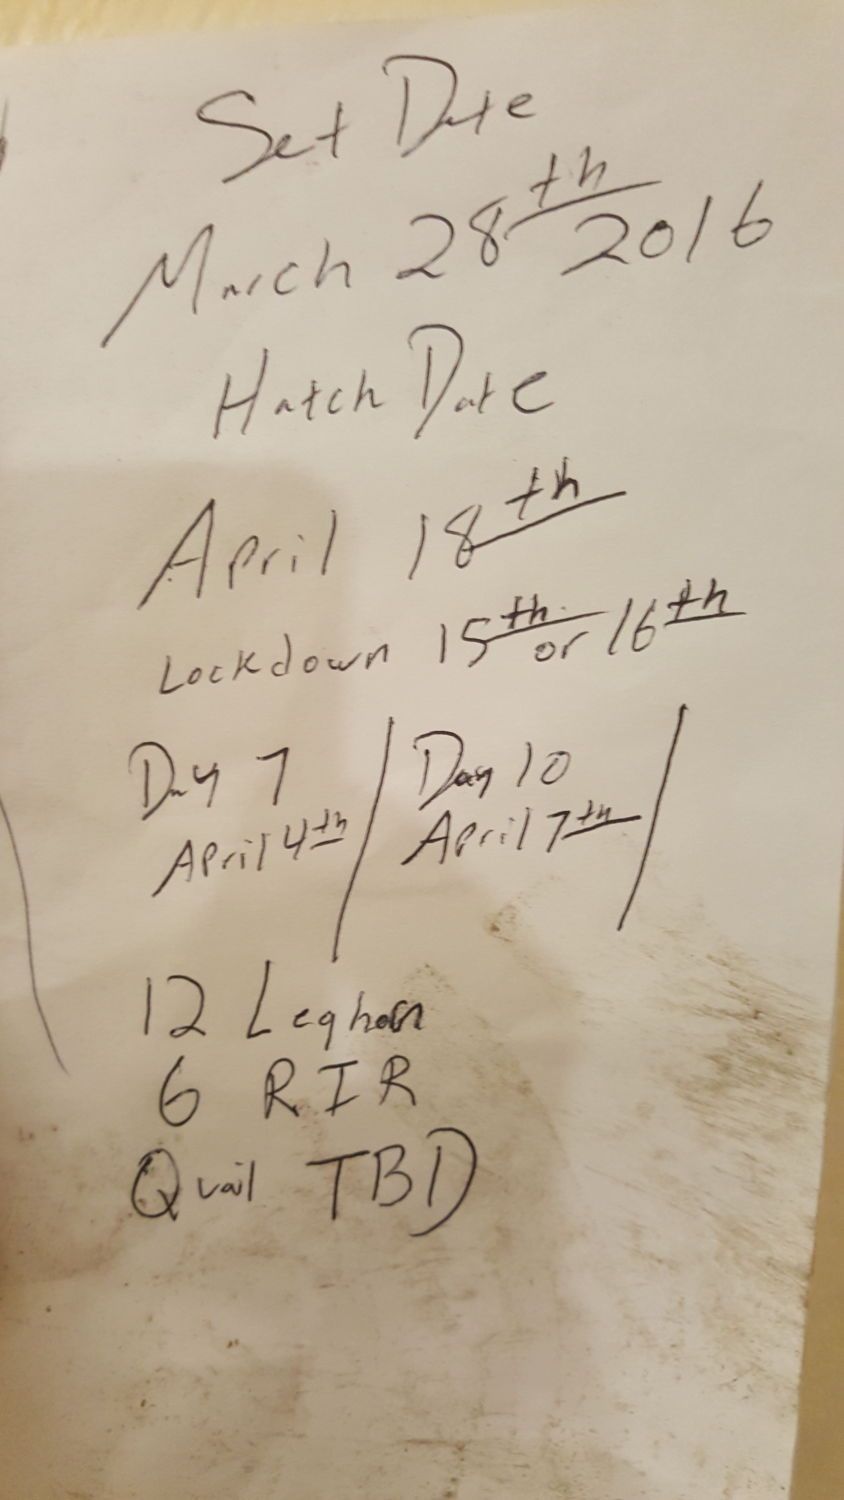 Set Date
March 28th 2016
Hatch Date
April 18th
Lockdown 15th or 16th
Day 7 / Day 10 /
April 4th April 7th
12 Leghorn
6 RIR
Quail TBD